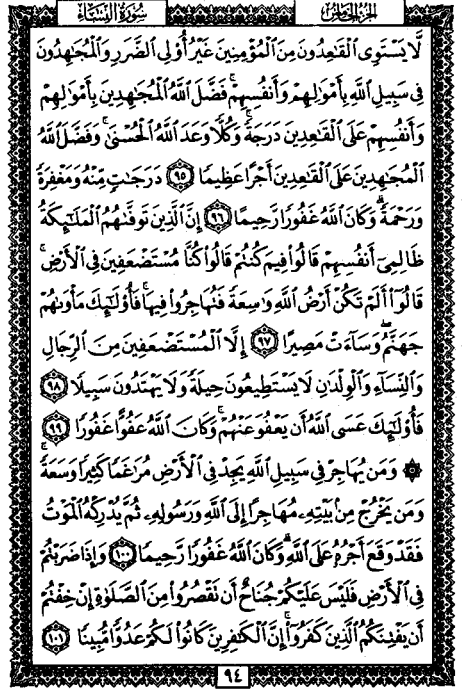 الجزء الخامس
سورة النساء
لَّا يَسْتَوِى الْقَٰعِدُونَ مِنَ الْمُؤْمِنِينَ غَيْرُ أُولِى الضَّرَرِ وَالْمُجَٰهِدُونَ
فِى سَبِيلِ اللَّهِ بِأَمْوَٰلِهِمْ وَأَنفُسِهِمْ ۚ فَضَّلَ اللَّهُ الْمُجَٰهِدِينَ بِأَمْوَٰلِهِمْ
وَأَنفُسِهِمْ عَلَى الْقَٰعِدِينَ دَرَجَةً ۚ وَكُلًّا وَعَدَ اللَّهُ الْحُسْنَىٰ ۚ وَفَضَّلَ اللَّهُ
الْمُجَٰهِدِينَ عَلَى الْقَٰعِدِينَ أَجْرًا عَظِيمًا ٩٥ دَرَجَٰتٍ مِّنْهُ وَمَغْفِرَةً
وَرَحْمَةً ۚ وَكَانَ اللَّهُ غَفُورًا رَّحِيمًا ٩٦ إِنَّ الَّذِينَ تَوَفَّىٰهُمُ الْمَلَٰٓئِكَةُ
ظَالِمِىٓ أَنفُسِهِمْ قَالُوا۟ فِيمَ كُنتُمْ ۖ قَالُوا۟ كُنَّا مُسْتَضْعَفِينَ فِى الْأَرْضِ ۚ
قَالُوٓا۟ أَلَمْ تَكُنْ أَرْضُ اللَّهِ وَٰسِعَةً فَتُهَاجِرُوا۟ فِيهَا ۚ فَأُو۟لَٰٓئِكَ مَأْوَىٰهُمْ
جَهَنَّمُ ۖ وَسَآءَتْ مَصِيرًا ٩٧ إِلَّا الْمُسْتَضْعَفِينَ مِنَ الرِّجَالِ
وَالنِّسَآءِ وَالْوِلْدَٰنِ لَا يَسْتَطِيعُونَ حِيلَةً وَلَا يَهْتَدُونَ سَبِيلًا ٩٨
فَأُو۟لَٰٓئِكَ عَسَى اللَّهُ أَن يَعْفُوَ عَنْهُمْ ۚ وَكَانَ اللَّهُ عَفُوًّا غَفُورًا ٩٩
۞ وَمَن يُهَاجِرْ فِى سَبِيلِ اللَّهِ يَجِدْ فِى الْأَرْضِ مُرَٰغَمًا كَثِيرًا وَسَعَةً ۚ
وَمَن يَخْرُجْ مِنۢ بَيْتِهِۦ مُهَاجِرًا إِلَى اللَّهِ وَرَسُولِهِۦ ثُمَّ يُدْرِكْهُ الْمَوْتُ
فَقَدْ وَقَعَ أَجْرُهُۥ عَلَى اللَّهِ ۗ وَكَانَ اللَّهُ غَفُورًا رَّحِيمًا ١٠٠ وَإِذَا ضَرَبْتُمْ
فِى الْأَرْضِ فَلَيْسَ عَلَيْكُمْ جُنَاحٌ أَن تَقْصُرُوا۟ مِنَ الصَّلَوٰةِ إِنْ خِفْتُمْ
أَن يَفْتِنَكُمُ الَّذِينَ كَفَرُوٓا۟ ۚ إِنَّ الْكَٰفِرِينَ كَانُوا۟ لَكُمْ عَدُوًّا مُّبِينًا ١٠١
٩٤